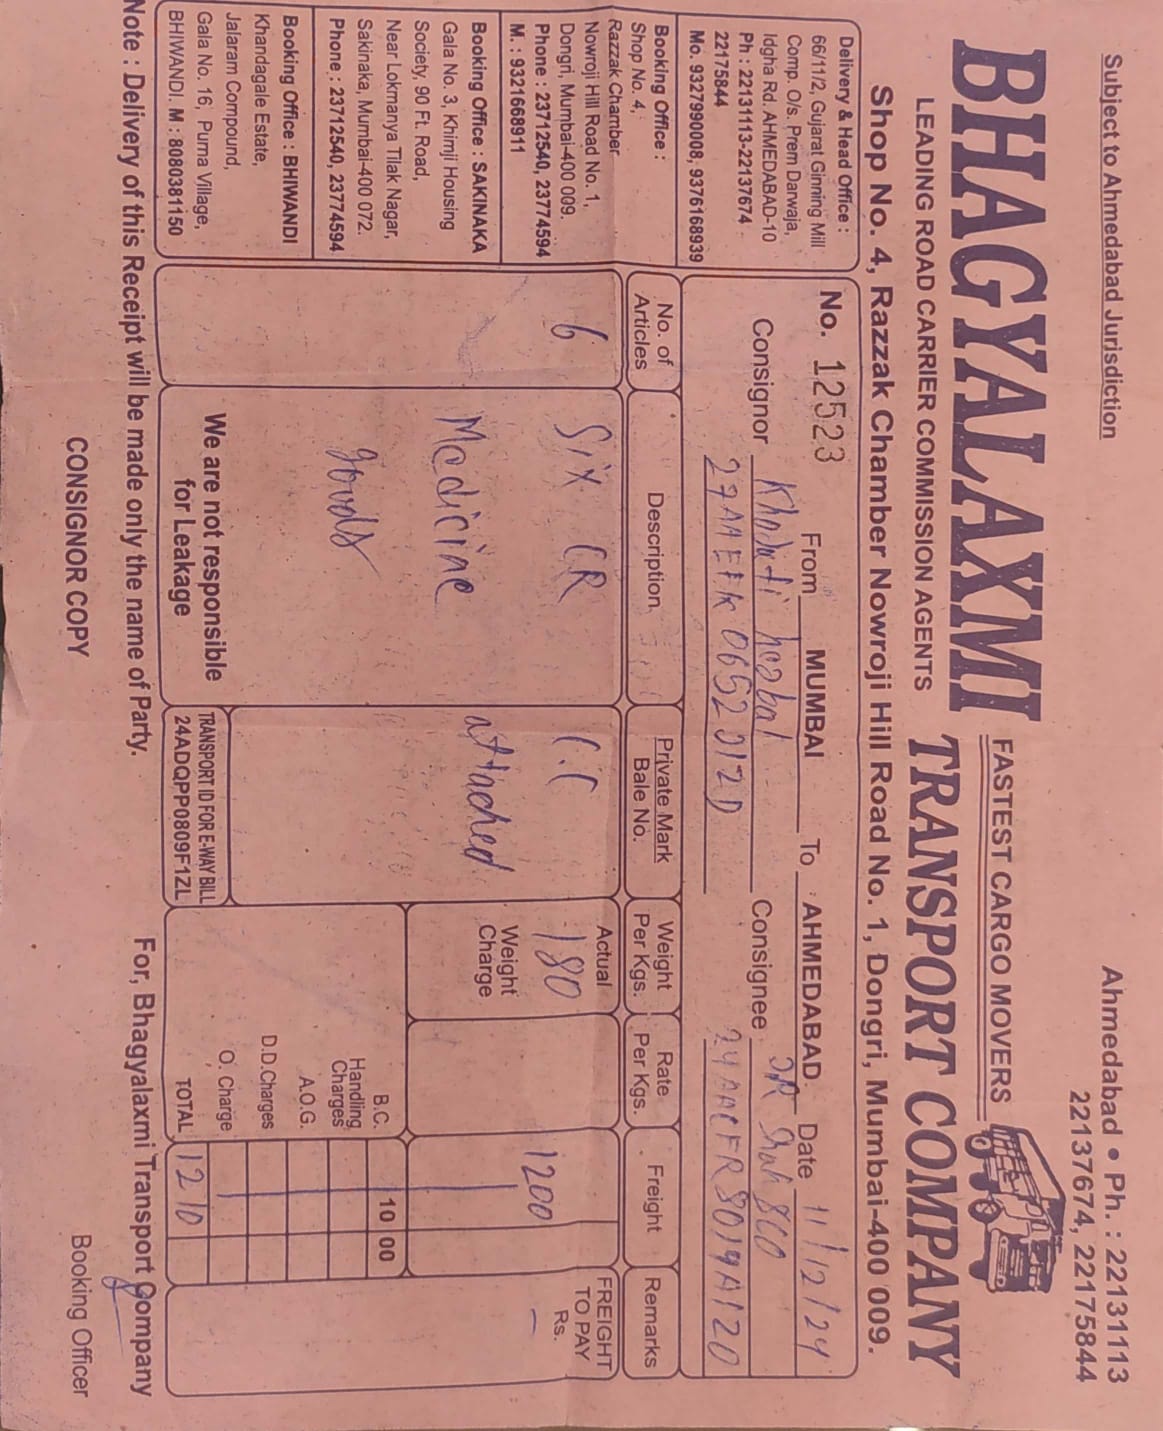 Subject to Ahmedabad Jurisdiction
Ahmedabad • Ph. : 22131113
22137674, 22175844
BHAGYALAXMI
FASTEST CARGO MOVERS
TRANSPORT COMPANY
LEADING ROAD CARRIER COMMISSION AGENTS
Shop No. 4, Razzak Chamber Nowroji Hill Road No. 1, Dongri, Mumbai-400 009.
Delivery & Head Office :
66/11/2, Gujarat Ginning Mill
Comp. O/s. Prem Darwaja,
Idgha Rd. AHMEDABAD-10
Ph : 22131113-22137674
22175844
Mo. 9327990008, 9376168939
Booking Office :
Shop No. 4,
Razzak Chamber
Nowroji Hill Road No. 1,
Dongri, Mumbai-400 009.
Phone : 23712540, 23774594
M. : 9321668911
Booking Office : SAKINAKA
Gala No. 3, Khimji Housing
Society, 90 Ft. Road,
Near Lokmanya Tilak Nagar,
Sakinaka, Mumbai-400 072.
Phone : 23712540, 23774594
Booking Office : BHIWANDI
Khandagale Estate,
Jalaram Compound,
Gala No. 16, Purna Village,
BHIWANDI. M : 8080381150
No. 12523 From MUMBAI To AHMEDABAD. Date 11/12/24
Consignor herbal Consignee Shah & CO
No. of Articles
Description
Private Mark Bale No.
Weight Per Kgs.
Rate Per Kgs.
Freight
Remarks
6
Six CR
C.C
Actual
180
1200
FREIGHT
TO PAY
Rs.
Medicine
attached
Weight
Charge
goods
B.C. 10 00
Handling
Charges
A.O.G.
D.D.Charges
O. Charge
TOTAL 1210
We are not responsible
for Leakage
TRANSPORT ID FOR E-WAY BILL
24ADQPP0809F1ZL
Note : Delivery of this Receipt will be made only the name of Party.
For, Bhagyalaxmi Transport Company
CONSIGNOR COPY
Booking Officer